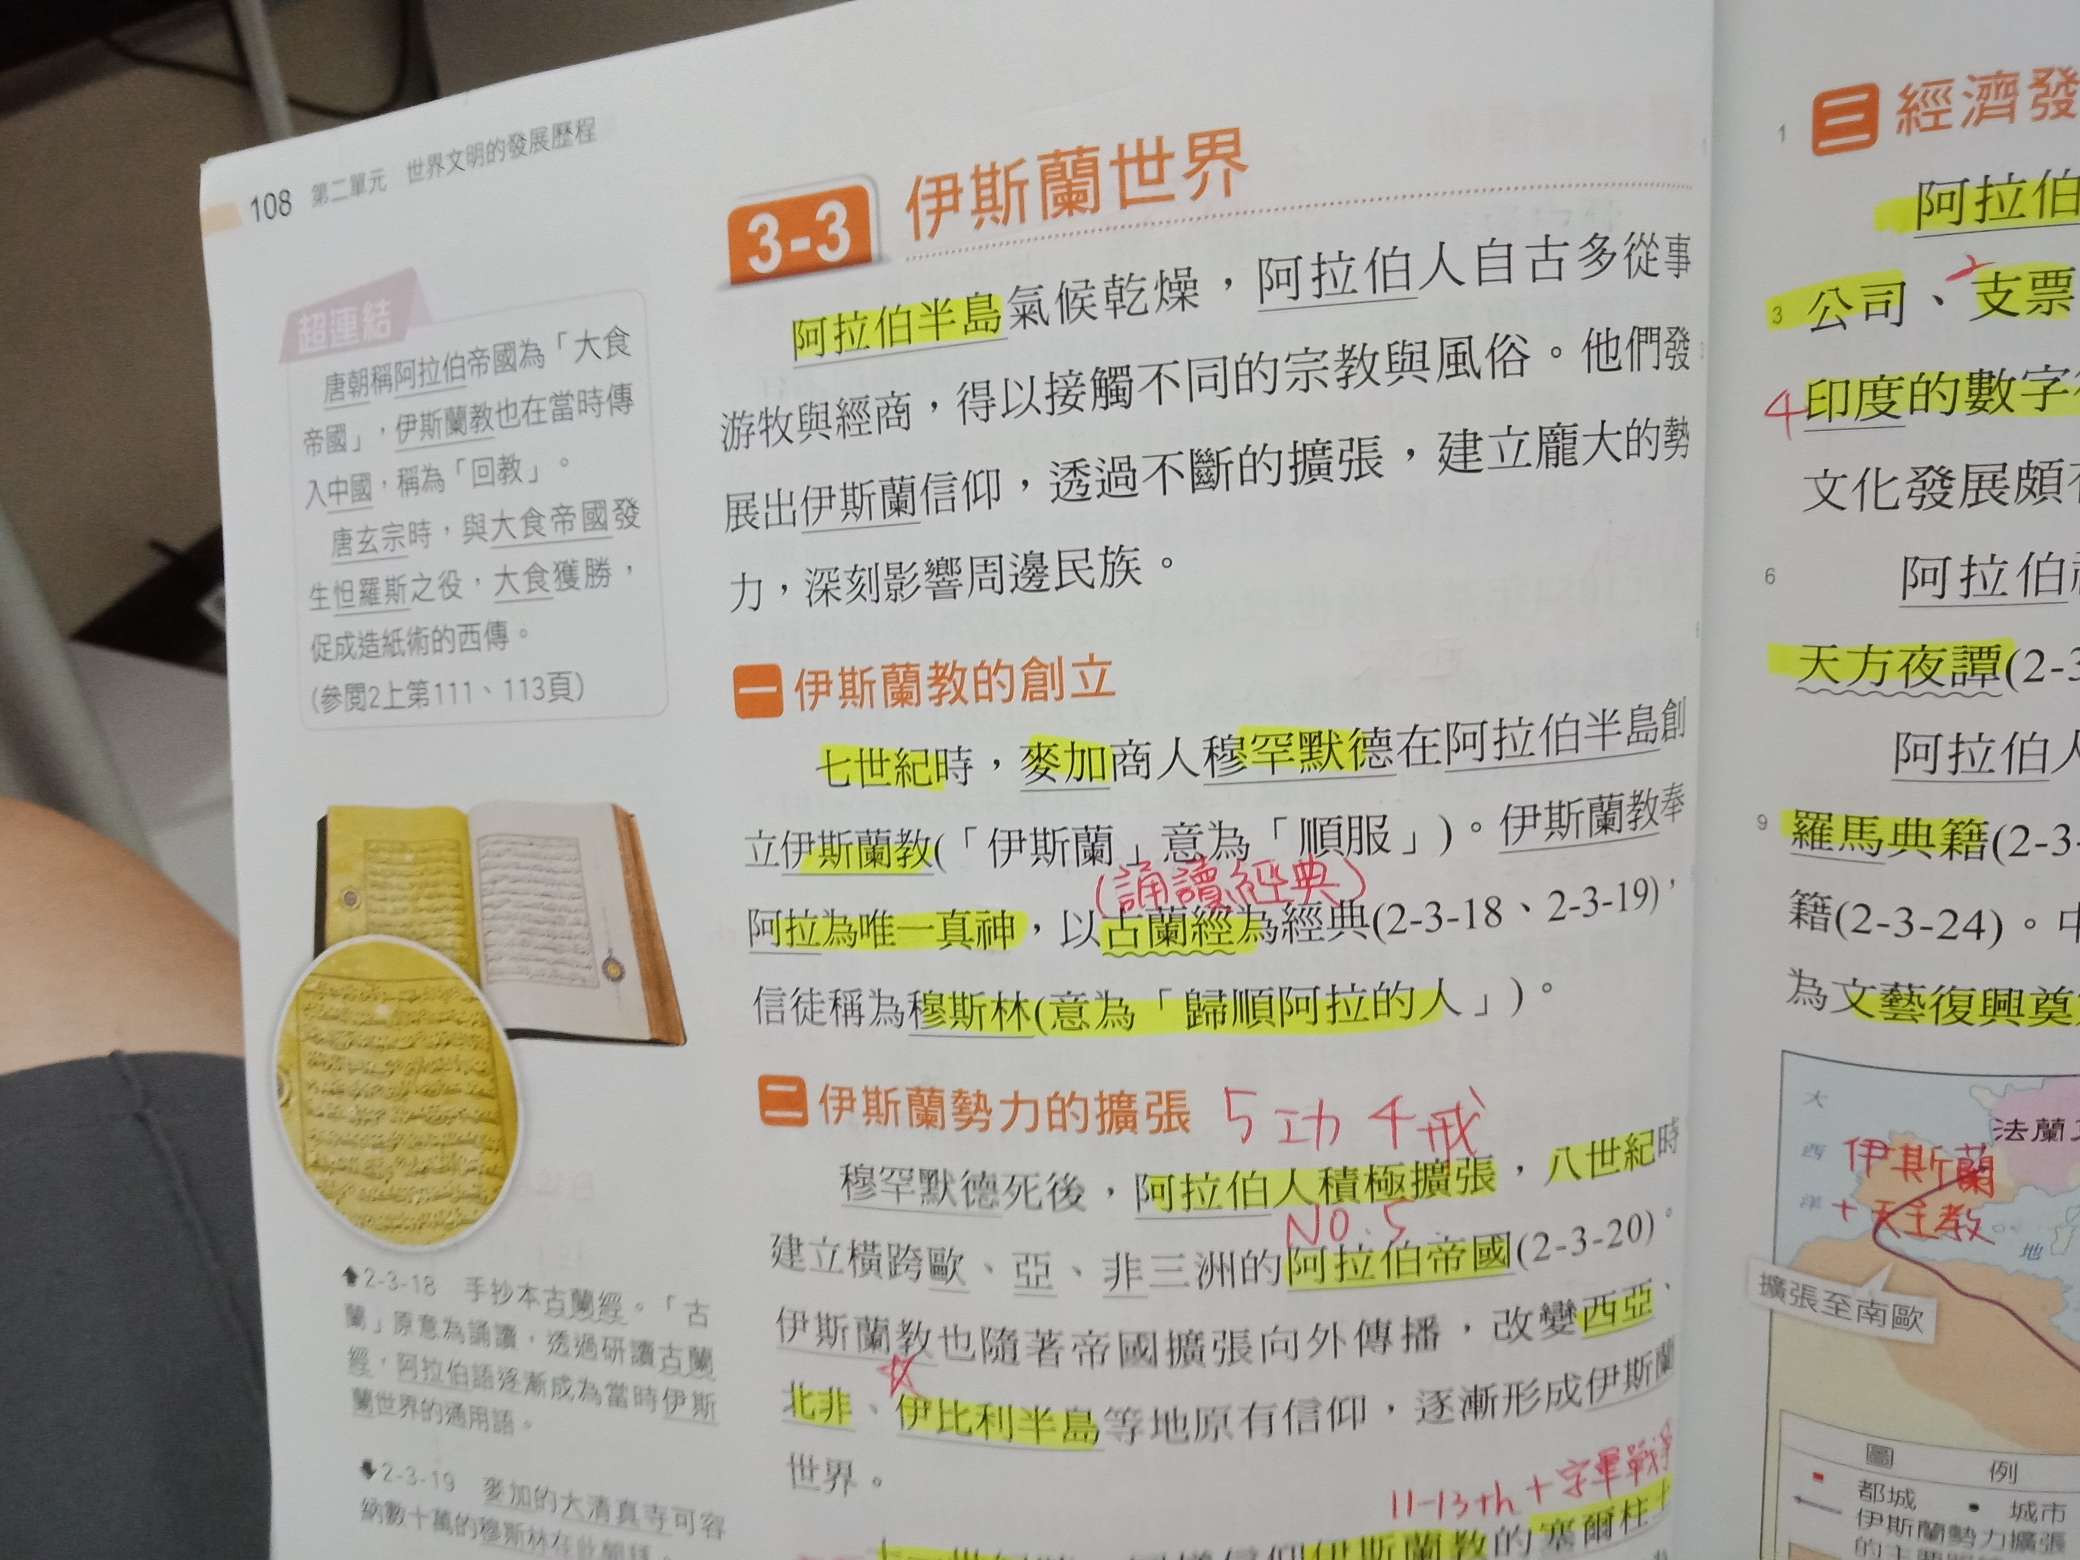 108 第二單元 世界文明的發展歷程
超連結
唐朝稱阿拉伯帝國為「大食
帝國」，伊斯蘭教也在當時傳
入中國，稱為「回教」。
唐玄宗時，與大食帝國發
生怛羅斯之役，大食獲勝，
促成造紙術的西傳。
(參閱2上第111、113頁)
2-3-18 手抄本古蘭經。「古
蘭」原意為誦讀，透過研讀古蘭
經，阿拉伯語逐漸成為當時伊斯
蘭世界的通用語。
2-3-19 麥加的大清真寺可容
納數十萬的穆斯林在此
3-3 伊斯蘭世界
阿拉伯半島氣候乾燥，阿拉伯人自古多從事
游牧與經商，得以接觸不同的宗教與風俗。他們發
展出伊斯蘭信仰，透過不斷的擴張，建立龐大的勢
力，深刻影響周邊民族。
一 伊斯蘭教的創立
七世紀時，麥加商人穆罕默德在阿拉伯半島創
立伊斯蘭教(「伊斯蘭」意為「順服」)。伊斯蘭教奉
(誦讀經典)
阿拉為唯一真神，以古蘭經為經典(2-3-18、2-3-19)，
信徒稱為穆斯林(意為「歸順阿拉的人」)。
二 伊斯蘭勢力的擴張 5功 4戒
穆罕默德死後，阿拉伯人積極擴張，八世紀時
NO.5
建立橫跨歐、亞、非三洲的阿拉伯帝國(2-3-20)。
伊斯蘭教也隨著帝國擴張向外傳播，改變西亞、
北非、伊比利半島等地原有信仰，逐漸形成伊斯蘭
世界。
11-13th 十字軍戰爭
伊斯蘭教的塞爾柱土
1 三 經濟發
阿拉伯
3 公司、支票
4 印度的數字
文化發展頗
6 阿拉伯
天方夜譚(2-3
阿拉伯人
9 羅馬典籍(2-3-
籍(2-3-24)。中
為文藝復興奠
大
西
洋
法蘭
伊斯蘭
+天主教
地
擴張至南歐
圖 例
都城 城市
伊斯蘭勢力擴張
的主要